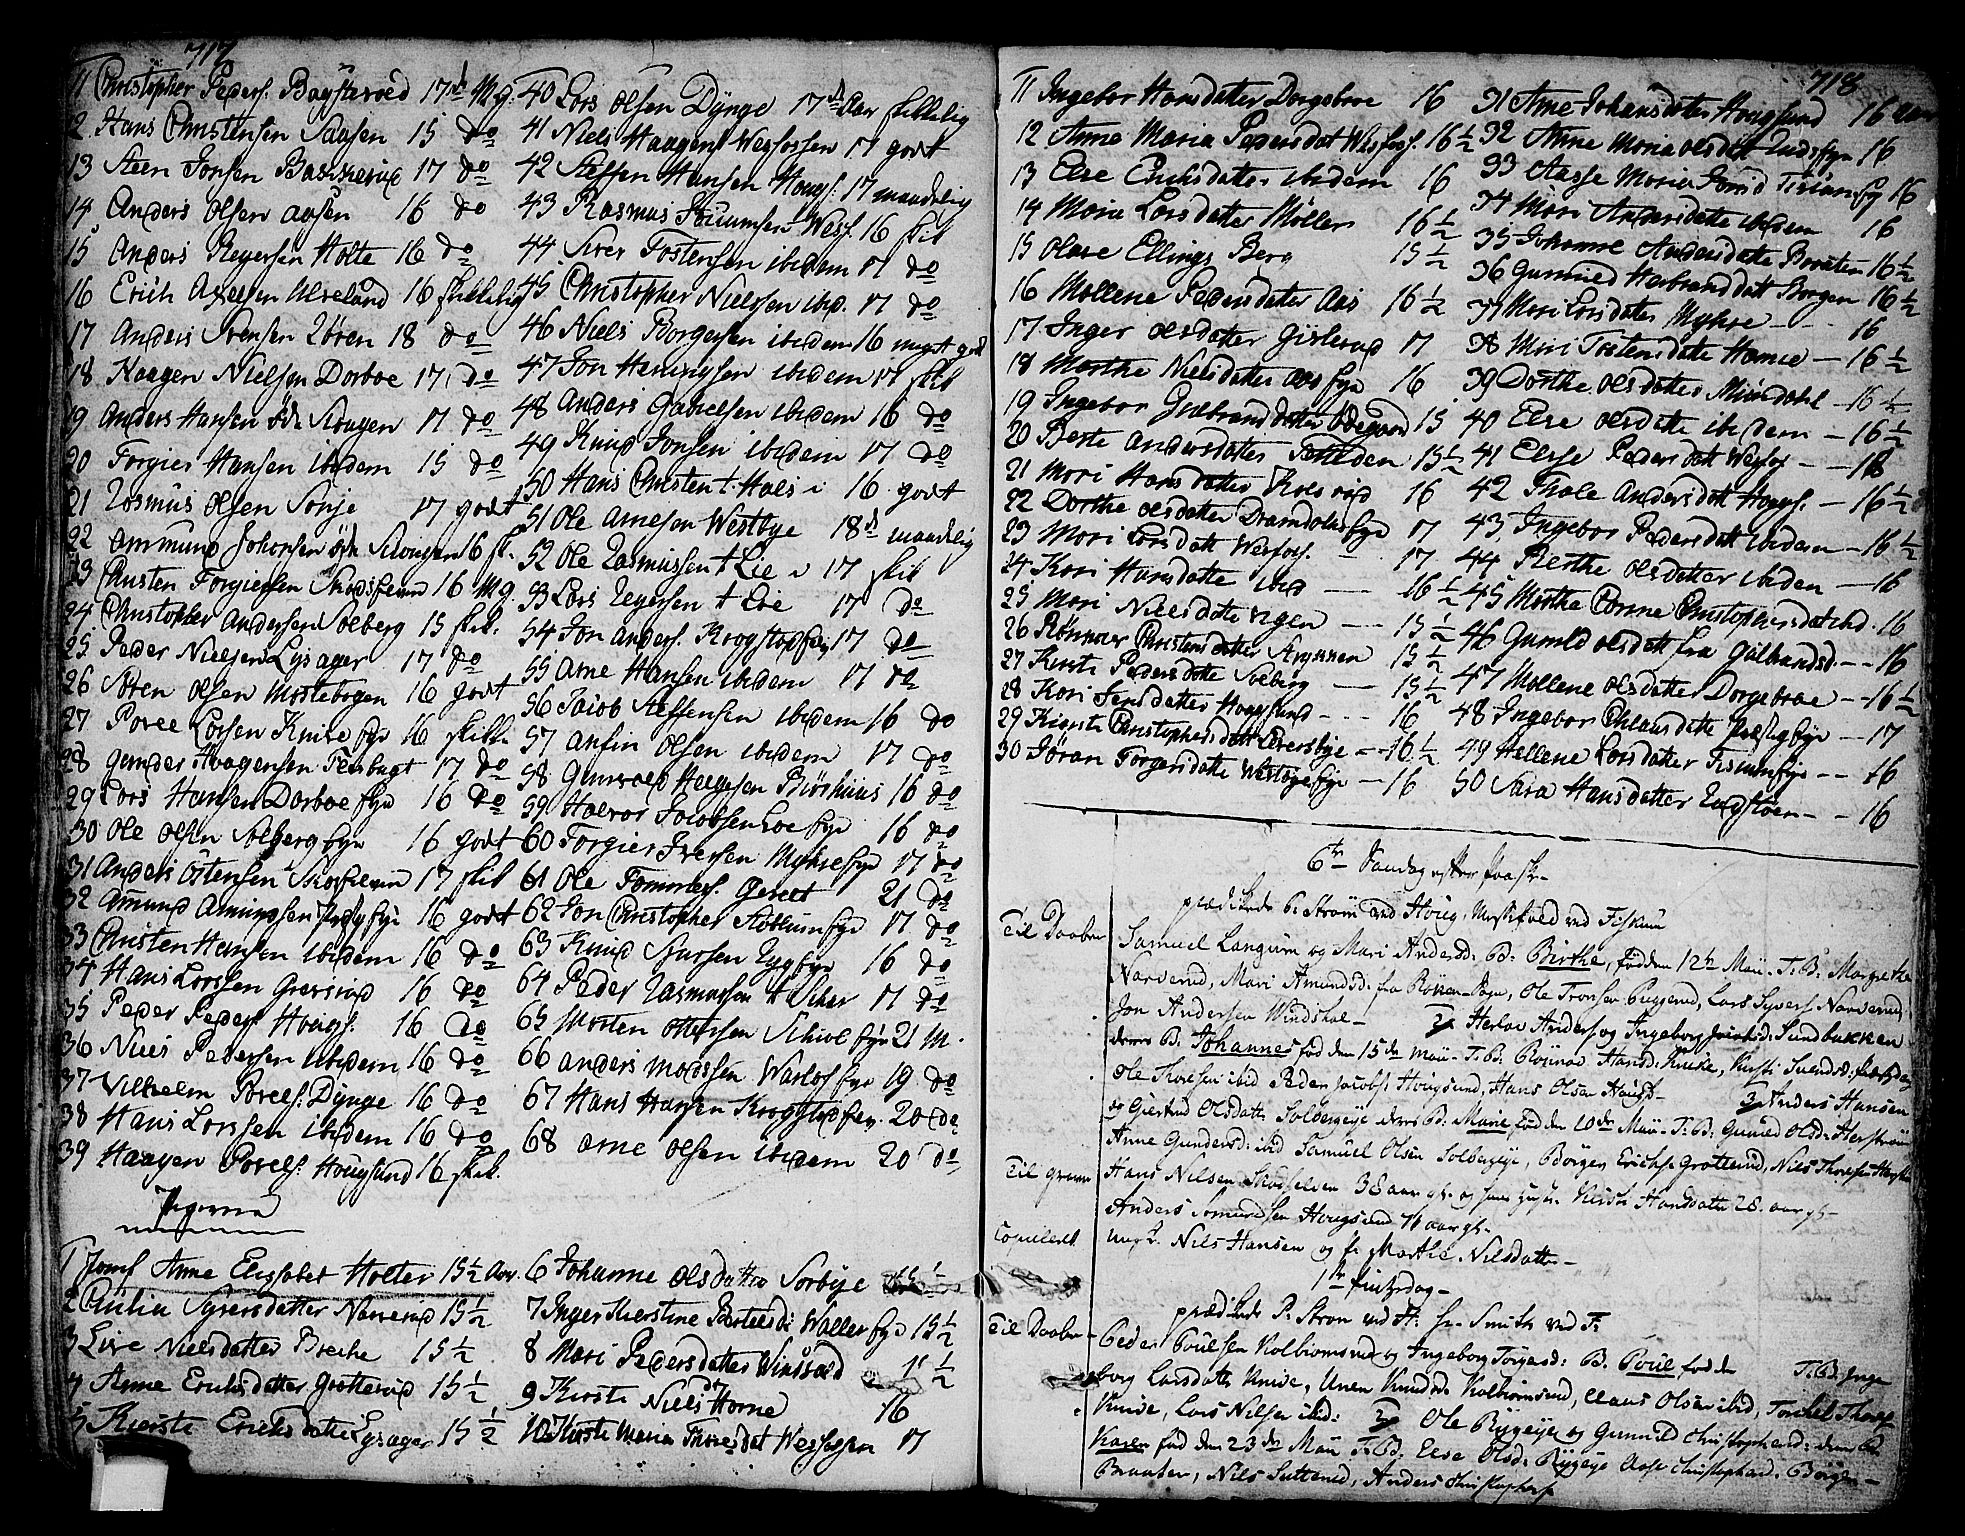 717
11 Christopher Peders. Bagsteroed 17 do M.g.
12 Hans Christensen Aasen 15 do
13 Steen Jonsen Backerud 17 do
14 Anders Olsen Aasen 16 do
15 Anders Reyersen Holte 16 do
16 Erich Axelsen Ulveland 16 skikkelig
17 Anders Svensen Lören 18 do
18 Haagen Nielsen Dorboe 17 do
19 Anders Hansen Öde Skougen 17 do
20 Torgier Hansen ibidem 15 do
21 Rasmus Olsen Sonje 17 godt
22 Ammund Johansen Öde Skougen 16 sk.
23 Christen Torgiersen Skodselven 16 M.g.
24 Christopher Andersen Solberg 15 skik.
25 Peder Nielsen Lysager 17 do
26 Sören Olsen Mastebogen 16 godt
27 Povel Larsen Knive eye 16 skikk.
28 Gunder Haagensen Teesbugt 17 do
29 Lars Hansen Dorboe eye 16 do
30 Ole Olsen Solberg eye 16 godt
31 Anders Östensen Skodselven 17 skik
32 Amund Amundsen Præsteye 16 godt
33 Christen Hansen ibidem 16 do
34 Hans Larssen Grøsrud 16 do
35 Peder Peders. Hougs. 16 do
36 Niels Pedersen ibidem 16 do
37 Vilhelm Povels. Dynge 16 do
38 Hans Larssen ibidem 16 do
39 Haagen Povels. Hougsund 16 skik.
40 Lars Olsen Dynge 17 do Aar skikkelig
41 Niels Haagens. Wesfossen 17 godt
42 Steffen Hansen Hougs. 17 maadelig
43 Rasmus Truumsen Wesf. 16 skik
44 Siver Tostensen ibidem 17 do
45 Christopher Nielssen ibid. 17 do
46 Niels Borgersen ibidem 16 meget godt
47 Jon Henningsen ibidem 17 skik
48 Anders Gabrielsen ibidem 16 do
49 Knud Jonsen ibidem 17 do
50 Hans Christen t. Hals i 16 godt
51 Ole Arnesen Westbye 18 do maadelig
52 Ole Rasmussen t Lie i 17 skik
53 Lars Reyersen t Loe 17 do
54 Jon Anders. Krogstadeye 17 do
55 Arne Hansen ibidem 17 do
56 Jacob Steffensen ibidem 16 do
57 Ansin Olsen ibidem 17 do
58 Gunvald Helgesen Börshuus 16 do
59 Halvor Jacobsen Loe eye 16 do
60 Torgier Iversen Myhre eye 17 do
61 Ole Tommes. Gereet 21 do
62 Jon Christopher Stocklum eye 17 do
63 Knud Siursen Ryg eye 16 do
64 Peder Rasmussen t Sicher 17 do
65 Morten Ottersen Schioe eye 21 M.
66 Anders Madssen Warlos eye 19 do
67 Hans Hansen Krogstad eye. 20 do
68 Arne Olsen ibidem 20 do
Pigerne
1 Jomf. Anne Elisabet Holter 15½ Aar.
2 Paulia Syversdatter Narverud 15½
3 Live Nielsdatter Breche 15½
4 Anne Erichsdatter Grotterud 15½
5 Kierste Erichsdatte Lysager 15½
6 Johanne Olsdatter Sorbye
7 Inger Kierstine Bertelsd: Waller eye 15½
8 Mari Pedersdatter Windsvold 1½
9 Kirste Niels Horne 16
10 Kirste Maria Thoresdat Wesfossen 17
718
11 Ingebor Hansdatter Dorgeboe 16
12 Anne Maria Pedersdat Wesfoss. 16½
13 Else Erichsdatter ibidem 16
14 Maria Larsdatter Møller 16½
15 Olave Ellings Berg 15½
16 Mallene Pedersdatter Aas 16½
17 Inger Olsdatter Gislerud 17
18 Marthe Nielsdatter Aas eye 16
19 Ingebor Gulbrandsdatter Ödegaard 15
20 Berte Andersdatter Tollefden 15½
21 Mari Hansdatter Kolsrud 16
22 Dorthe Olsdatter Dramdals eye 17
23 Mari Larsdatt Wesfoss. 17
24 Kari Hansdatte ibid 16½
25 Mari Nielsdatte Rygen 15½
26 Rønnaer Christensdatter Stryken 15½
27 Kirsti Pedersdatte Solberg 15½
28 Kari Jensdatter Hougsund 16
29 Kierste Christophersdatt Eversbye 16½
30 Jöran Torgersdatte Westbye eye 16
31 Anne Johansdatter Hougsund 16 aar
32 Anne Maria Olsdatt Lunds eye 16
33 Aasse Maria Jonsd Fiskum ey 16
34 Mari Andersdatte ibidem 16
35 Johanne Andersdatte Braaten 16½
36 Gunnild Harbrandsdatt Borgen 16½
37 Mari Larsdatter Myhre 16
38 Mari Tostensdatte Hamre 16½
39 Dorthe Olsdatter Miøndahl 16½
40 Else Olsdatte ibidem 16½
41 Else Pedersdatt Wesfos 18
42 Thale Andersdatt Hougs. 16½
43 Ingebor Pedersdatt ibidem 16½
44 Berthe Olsdatter ibidem 16
45 Marthe Corine Christophersdat ibd. 16
46 Gunild Olsdatt fra Gulbrandsd. 16
47 Mallene Olsdatter Dorgeboe 16½
48 Ingebor Ehlausdatte Præsteye 17
49 Hellene Larsdatter Fiskumeye 16
50 Sara Hansdatter Engstøen 16
6te Søndag efter Paaske
prædikede P. Strøm ved Houg, Muskfeld ved Fiskum
Til Daaben Samuel Langum og Mari Andersd: B. Birthe, född den 12te Maii. T. B: Margrethe
Narverud, Mari Amundsd: fra Röken-Sogn, Ole Tronsen Puggerud, Lars Syvers. Narverud,
Jon Andersen Windskol. 2) Herlov Anders. og Ingeborg Jacobsd: Sundbakken
deres B. Johannes född den 15de Maii. T. B: Rönnov Hansd: Knive, Kirsti Svendsd:
Ole Thoresen ibid Peder Jacobs. Hougsund, Hans Olsen Hougs. 3) Anders Hansen
og Giertrud Olsdatter Solbergeye deres B: Marie född den 10de Maii. T. B: Gunild Olsd:
Anne Gundersd: ibid Samuel Olsen Solbergeye, Børger Erichs. Grotterud, Nils Thoresen
Til Graven Hans Nilsen Skodselven 38 aar gl. og hans hustr. Kirsti Hansdatter 28. aar gl.
Anders Amundsen Hougsund 76 aar gl.
Copuleret. Ungk. Nils Hansen og P. Marthe Nilsdatter
1te Pintzedag
prædikede P: Strøm ved H: hr. Smith ved F:
Til Daaben Peder Poulsen Kolbiørnsrud og Ingeborg Torgersd: B. Poul född den T. B. Inge
borg Larsdatter Knive, Unen Knudsd. Kolbiørnsrud, Claus Olsen ibid, Torkel Thores
Knive, Lars Nilsen ibid: 2) Ole Rygeye og Gunnild Christophersd: deres B:
Karen född den 23de Maii T. B. Else Olsd: Rygeye Aase Christophersd. Borgen
Braaten, Nils Sutterud, Anders Christophers.